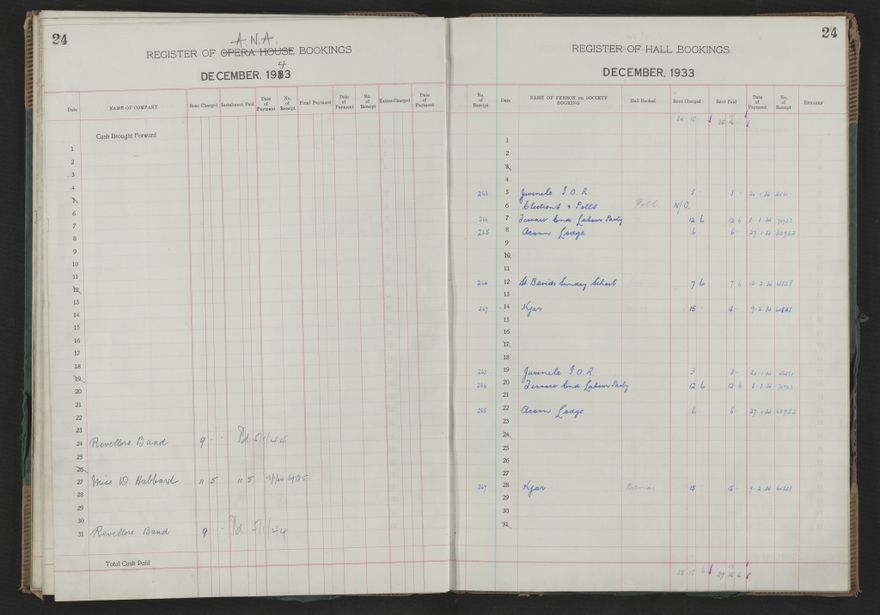 24
A.N.A.
REGISTER OF OPERA HOUSE BOOKINGS
4
DECEMBER, 1933
Date NAME OF COMPANY Rent Charged Instalment Paid Date of Payment No. of Receipt Final Payment Date of Payment No. of Receipt Extras Charged Date of Payment
Cash Brought Forward
1
2
3
4
5
6
7
8
9
10
11
12
13
14
15
16
17
18
19
20
21
22
23
24 Revellers Band 9 - - Pd 5/1/44
25
26
27 Miss D. Hubbard 11 5 11 5
28
29
30
31 Revellers Band 9 - Pd 5/1/44
Total Cash Paid
24
REGISTER OF HALL BOOKINGS
DECEMBER, 1933
No. of Receipt Date NAME OF PERSON OR SOCIETY BOOKING Hall Booked Rent Charged Rent Paid Date of Payment No. of Receipt Remarks
1
2
3
4
263 5 Juvenile I.O.R. 3 - 3 -
6 Elections & Polls Poll N/C.
264 7 Labour Party 12 6 12 6
265 8 Acorn Lodge 6 6 - 27.1.34
9
10
11
266 12 St. Davids Sunday School 7 6 7 6
13
267 14 Kyar 15 15 9.2.34
15
16
17
18
263 19 Juvenile I.O.R. 3 3 -
264 20 Labour Party 12 6 12 6
21
265 22 Acorn Lodge 6 - 6 27.1.34
23
24
25
26
27
267 28 Kyar 15 15 - 9.2.34
29
30
31